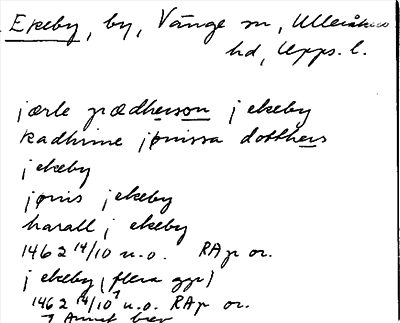 Ekeby, by, Vänge sn, Ulleråkers
hd, Upps. l.
jærle præedherson j ekeby
kadhrine jønissa dotthers
j ekeby
jønis j ekeby
harall j ekeby
1462 14/10 u.o. RAp or.
j ekeby (flera ggr)
1462 14/10 u.o. RAp or.
Annat brev